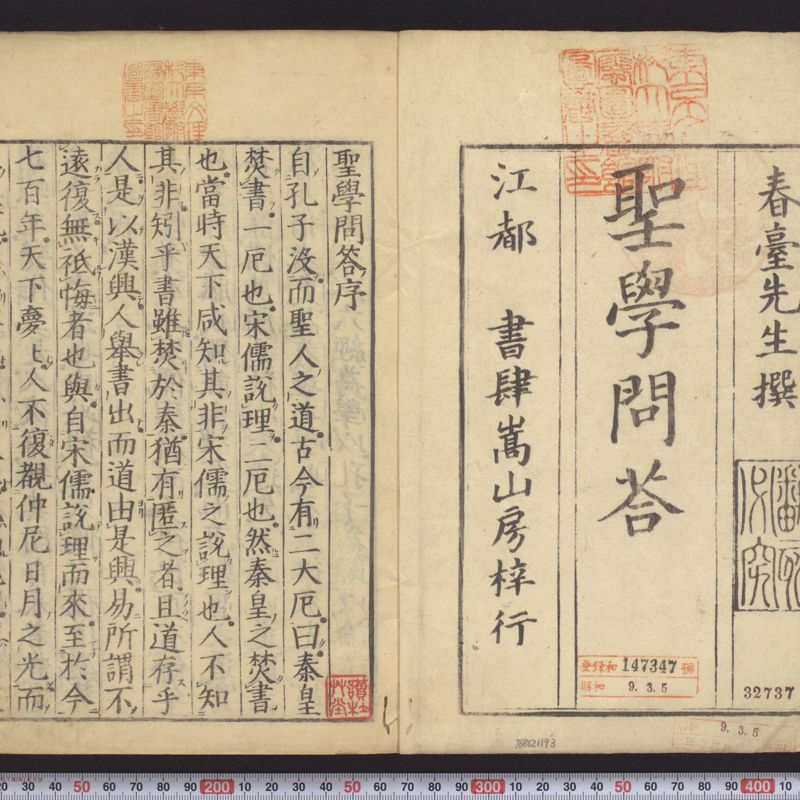 春臺先生撰
聖學問荅
江都 書肆嵩山房梓行
登錄和 147347 號
昭和 9. 3. 5
32737
9. 3. 5
768621193
聖學問答序
自孔子沒而聖人之道古今有二大厄曰秦皇
焚書一厄也宋儒說理二厄也然秦皇之焚書
也當時天下咸知其非宋儒之說理也人不知
其非矧乎書雖焚於秦猶有匿之者且道存乎
人是以漢興人舉書出而道由是興易所謂不
遠復無祇悔者也與自宋儒說理而來至於今
七百年天下夢上人不復觀仲尼日月之光而
20 30 40 50 60 70 80 90 200 10 20 30 40 50 60 70 80 90 300 10 20 30 40 50 60 70 80 90 400 10